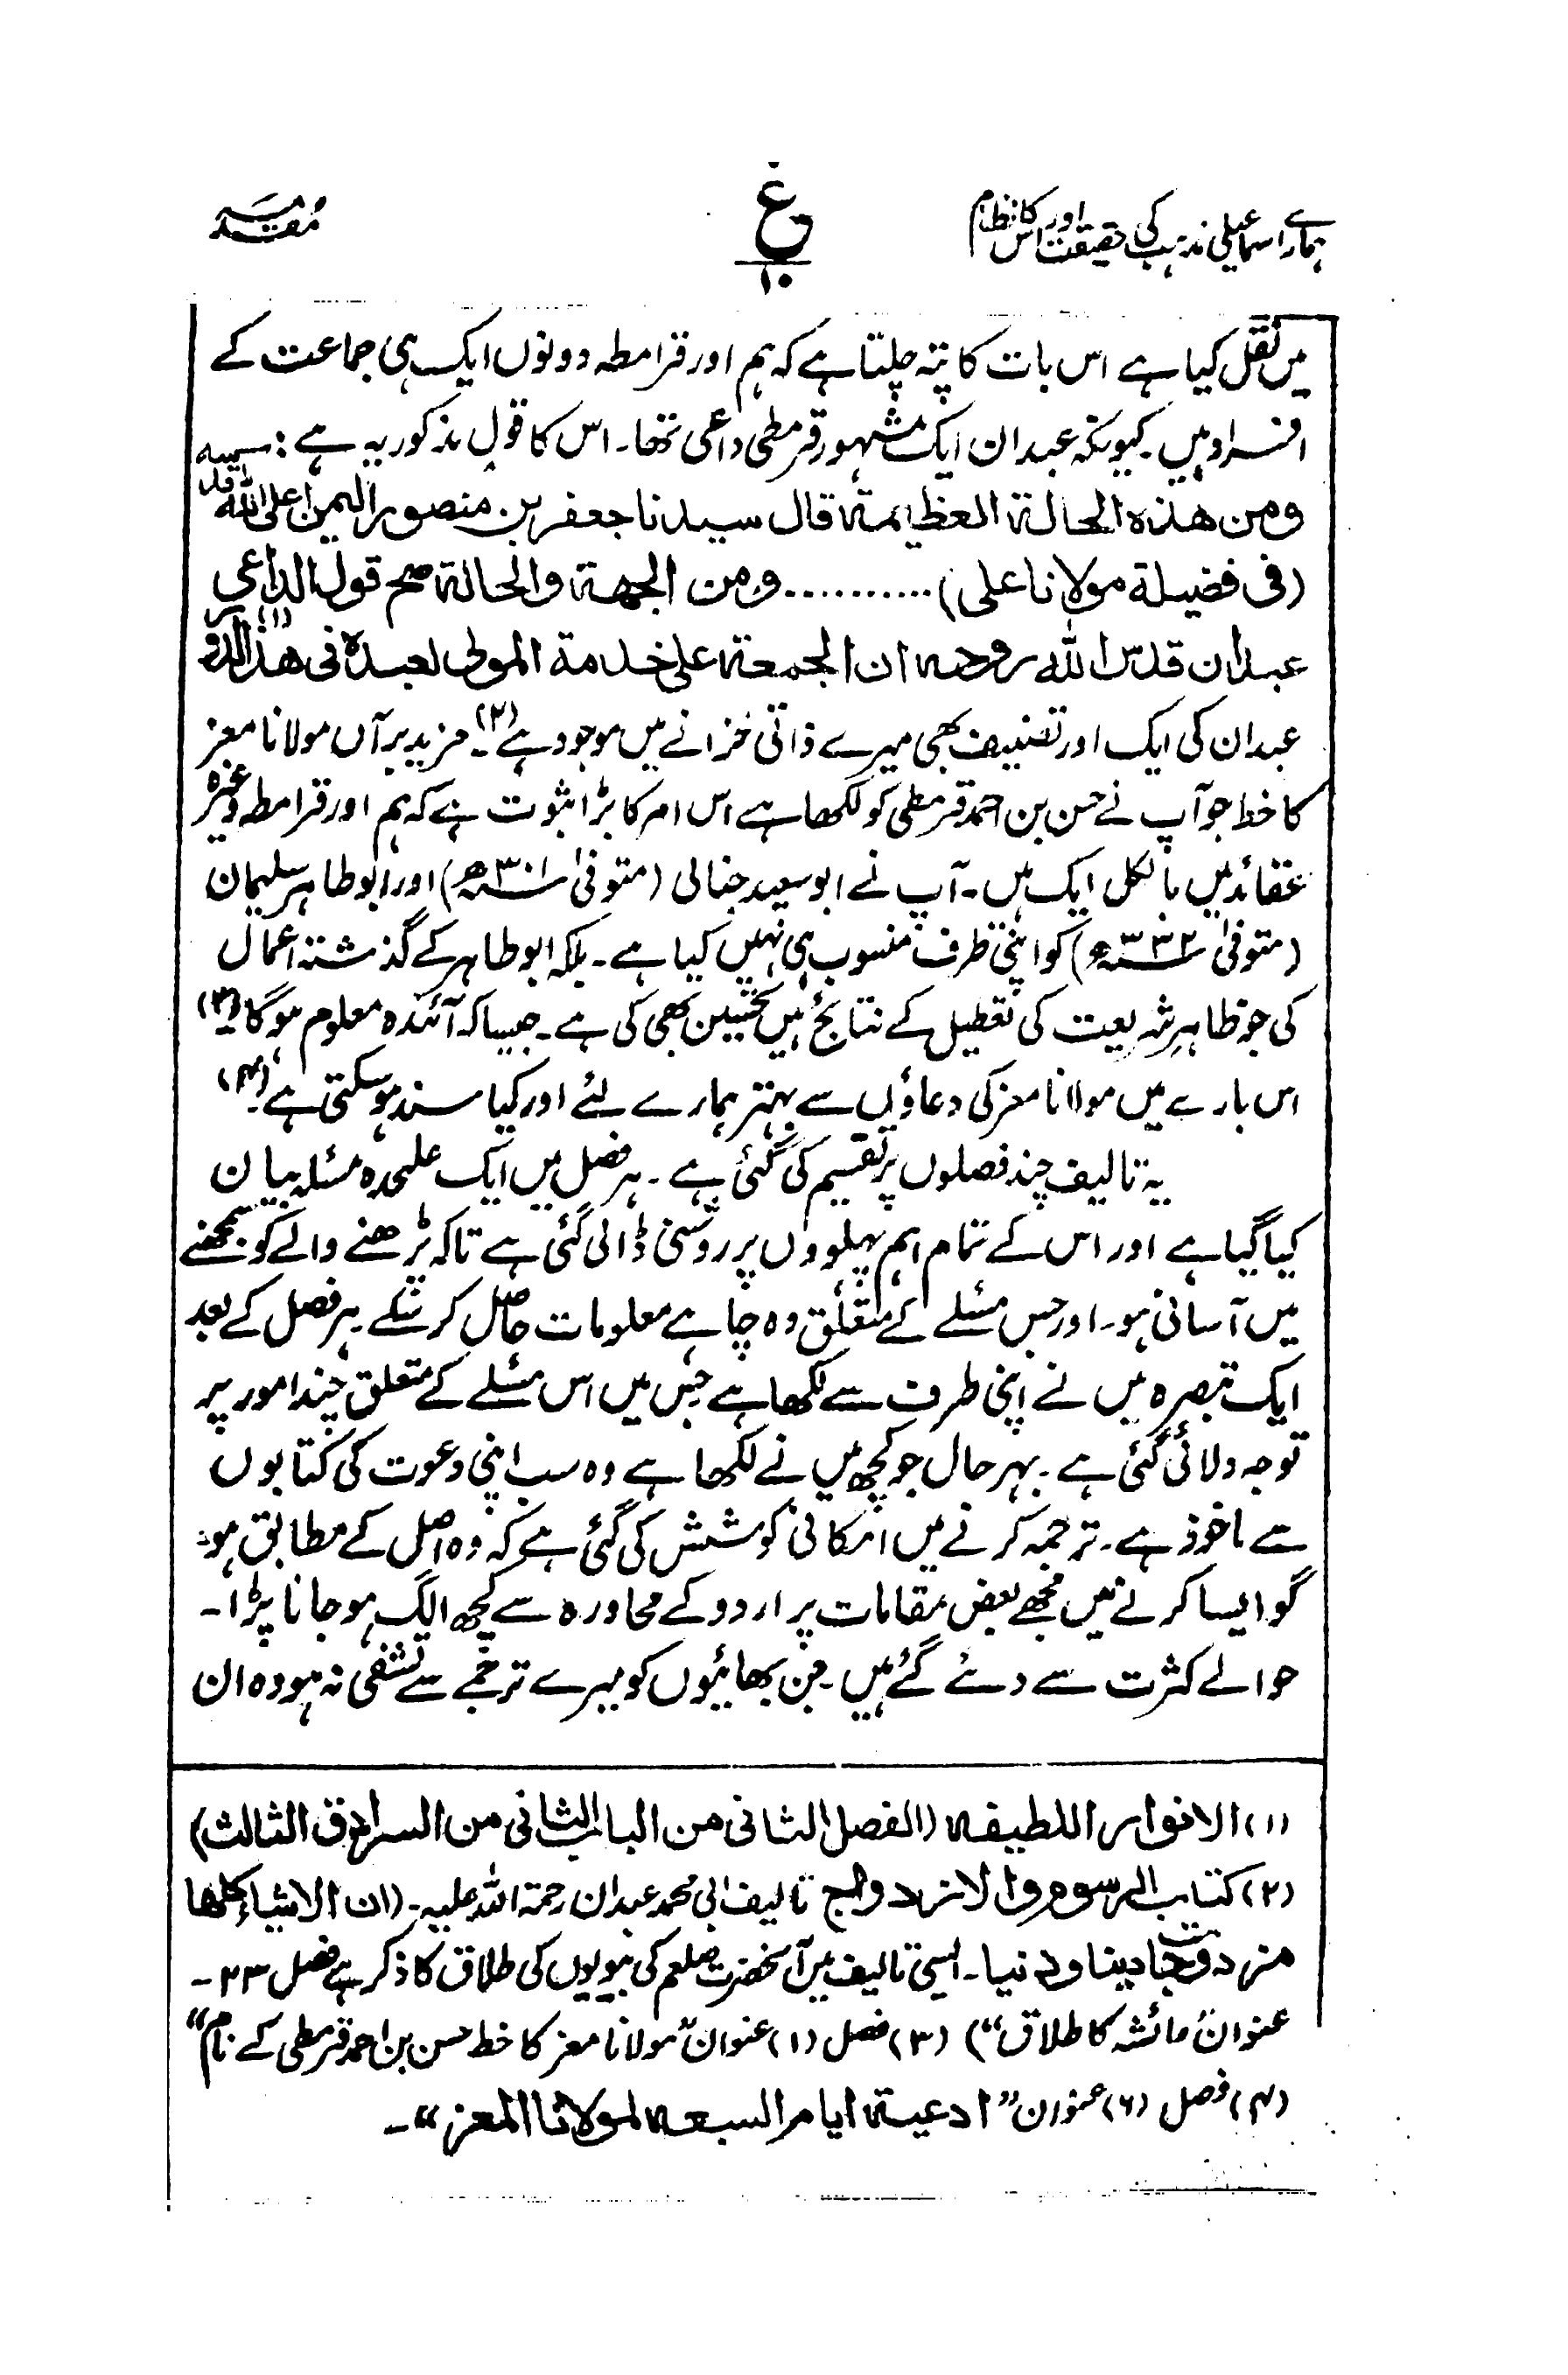 ہمارے اسماعیلی مذہب کی حقیقت اور اس کا نظام
غ
۱۰
مقدمہ
میں نقل کیا ہے اس بات کا پتہ چلتا ہے کہ ہم اور قرامطہ دونوں ایک ہی جماعت کے
افراد ہیں۔ کیونکہ عبدان ایک مشہور قرمطی داعی تھا۔ اس کا قول مذکور یہ ہے:
ومن هذه الحالة العظيمة قال سيدنا جعفر بن منصور اليمن اعلى الله قدسه
(فى فضيلة مولانا على) ........... ومن الجهة والحالة صح قول الداعى
عبدان قدس الله روحه ان الجمعة على خدمة المولى لعبده فى هذا الدور (۱)
عبدان کی ایک اور تصنیف بھی میرے ذاتی خزانے میں موجود ہے (۲)۔ مزید برآں مولانا معز
کا خط جو آپ نے حسن بن احمد قرمطی کو لکھا ہے اس امر کا بڑا ثبوت ہے کہ ہم اور قرامطہ وغیرہ
عقائد میں بالکل ایک ہیں۔ آپ نے ابو سعید جنابی (متوفیٰ ۳۰۱ھ) اور ابو طاہر سلیمان
(متوفیٰ ۳۳۲ھ) کو اپنی طرف منسوب ہی نہیں کیا ہے۔ بلکہ ابو طاہر کے گذشتہ اعمال
کی جو ظاہر شریعت کی تعطیل کے نتائج ہیں تحسین بھی کی ہے۔ جیسا کہ آئندہ معلوم ہوگا (۳)۔
اس بارے میں مولانا معز کی دعاؤں سے بہتر ہمارے لئے اور کیا سند ہو سکتی ہے (۴)۔
یہ تالیف چند فصلوں پر تقسیم کی گئی ہے۔ ہر فصل میں ایک علیحدہ مسئلہ بیان
کیا گیا ہے اور اس کے تمام اہم پہلووں پر روشنی ڈالی گئی ہے تاکہ پڑھنے والے کو سمجھنے
میں آسانی ہو۔ اور جس مسئلے کے متعلق وہ چاہے معلومات حاصل کر سکے۔ ہر فصل کے بعد
ایک تبصرہ میں نے اپنی طرف سے لکھا ہے جس میں اس مسئلے کے متعلق چند امور پر
توجہ دلائی گئی ہے۔ بہر حال جو کچھ میں نے لکھا ہے وہ سب اپنی دعوت کی کتابوں
سے ماخوذ ہے۔ ترجمہ کرنے میں امکانی کوشش کی گئی ہے کہ وہ اصل کے مطابق ہو
گو ایسا کرنے میں مجھے بعض مقامات پر اردو کے محاورہ سے کچھ الگ ہو جانا پڑا۔
حوالے کثرت سے دئے گئے ہیں۔ جن بھائیوں کو میرے ترجمے سے تشفی نہ ہو وہ ان
(۱) الانوار اللطيفه (الفصل الثانى من الباب الثانى من السرادق الثالث)
(۲) كتاب الرسوم والازدواج تالیف ابی محمد عبدان رحمۃ اللہ علیہ۔ (ان الاشياء كلها
مزدوجة دينا ودنيا۔ اسی تالیف میں آنحضرت صلعم کی بیویوں کی طلاق کا ذکر ہے فصل ۲۳۔
عنوان ”عائشہ کا طلاق“) (۳) فصل (۱) عنوان ”مولانا معز کا خط حسن بن احمد قرمطی کے نام“
(۴) فصل (۶) عنوان ”ادعية ايام السبعه لمولانا المعز“۔